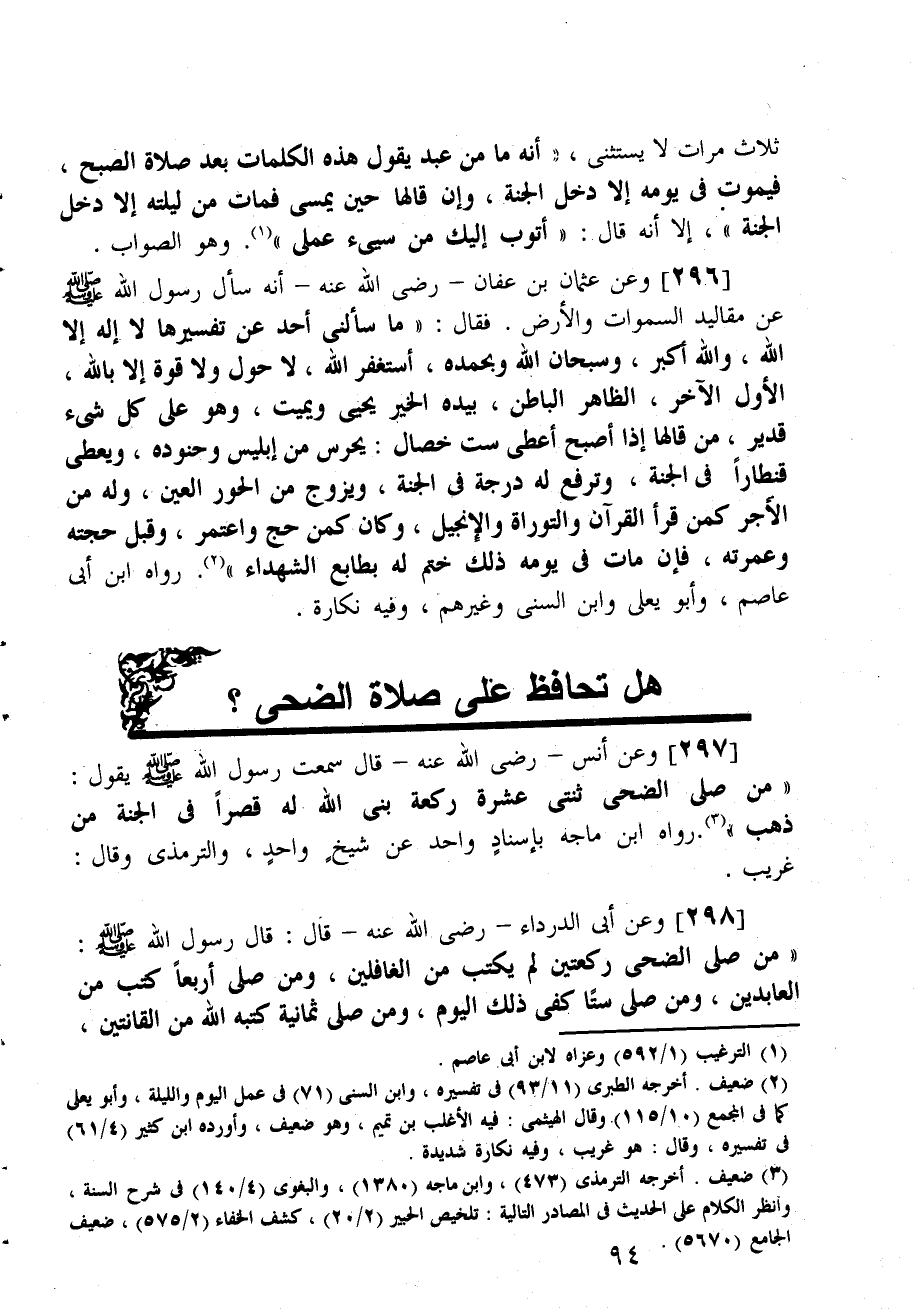 ثلاث مرات لا يستثنى ، « أنه ما من عبد يقول هذه الكلمات بعد صلاة الصبح ،
فيموت فى يومه إلا دخل الجنة ، وإن قالها حين يمسى فمات من ليلته إلا دخل
الجنة » ، إلا أنه قال : « أتوب إليك من سيىء عملى »(١). وهو الصواب .
[٢٩٦] وعن عثمان بن عفان – رضى الله عنه – أنه سأل رسول الله ﷺ
عن مقاليد السموات والأرض . فقال : « ما سألنى أحد عن تفسيرها لا إله إلا
الله ، والله أكبر ، وسبحان الله وبحمده ، أستغفر الله ، لا حول ولا قوة إلا بالله ،
الأول الآخر ، الظاهر الباطن ، بيده الخير يحيى ويميت ، وهو على كل شىء
قدير ، من قالها إذا أصبح أعطى ست خصال : يحرس من إبليس وحنوده ، ويعطى
قنطاراً فى الجنة ، وترفع له درجة فى الجنة ، ويزوج من الحور العين ، وله من
الأجر كمن قرأ القرآن والتوراة والإنجيل ، وكان كمن حج واعتمر ، وقبل حجته
وعمرته ، فإن مات فى يومه ذلك ختم له بطابع الشهداء »(٢). رواه ابن أبى
عاصم ، وأبو يعلى وابن السنى وغيرهم ، وفيه نكارة .
هل تحافظ على صلاة الضحى ؟
[٢٩٧] وعن أنس – رضى الله عنه – قال سمعت رسول الله ﷺ يقول :
« من صلى الضحى ثنتى عشرة ركعة بنى الله له قصراً فى الجنة من
ذهب »(٣).رواه ابن ماجه بإسنادٍ واحد عن شيخٍ واحدٍ ، والترمذى وقال :
غريب .
[٢٩٨] وعن أبى الدرداء – رضى الله عنه – قال : قال رسول الله ﷺ :
« من صلى الضحى ركعتين لم يكتب من الغافلين ، ومن صلى أربعاً كتب من
العابدين ، ومن صلى ستًا كفى ذلك اليوم ، ومن صلى ثمانية كتبه الله من القانتين ،
(١) الترغيب (٥٩٢/١) وعزاه لابن أبى عاصم .
(٢) ضعيف . أخرجه الطبرى (٩٣/١١) فى تفسيره ، وابن السنى (٧١) فى عمل اليوم والليلة ، وأبو يعلى
كما فى المجمع (١١٥/١٠).وقال الهيثمى : فيه الأغلب بن تميم ، وهو ضعيف ، وأورده ابن كثير (٦١/٤)
فى تفسيره ، وقال : هو غريب ، وفيه نكارة شديدة .
(٣) ضعيف . أخرجه الترمذى (٤٧٣) ، وابن ماجه (١٣٨٠) ، والبغوى (١٤٠/٤) فى شرح السنة ،
وانظر الكلام على الحديث فى المصادر التالية : تلخيص الحبير (٢٠/٢) ، كشف الخفاء (٥٧٥/٢) ، ضعيف
الجامع (٥٦٧٠) .
٩٤